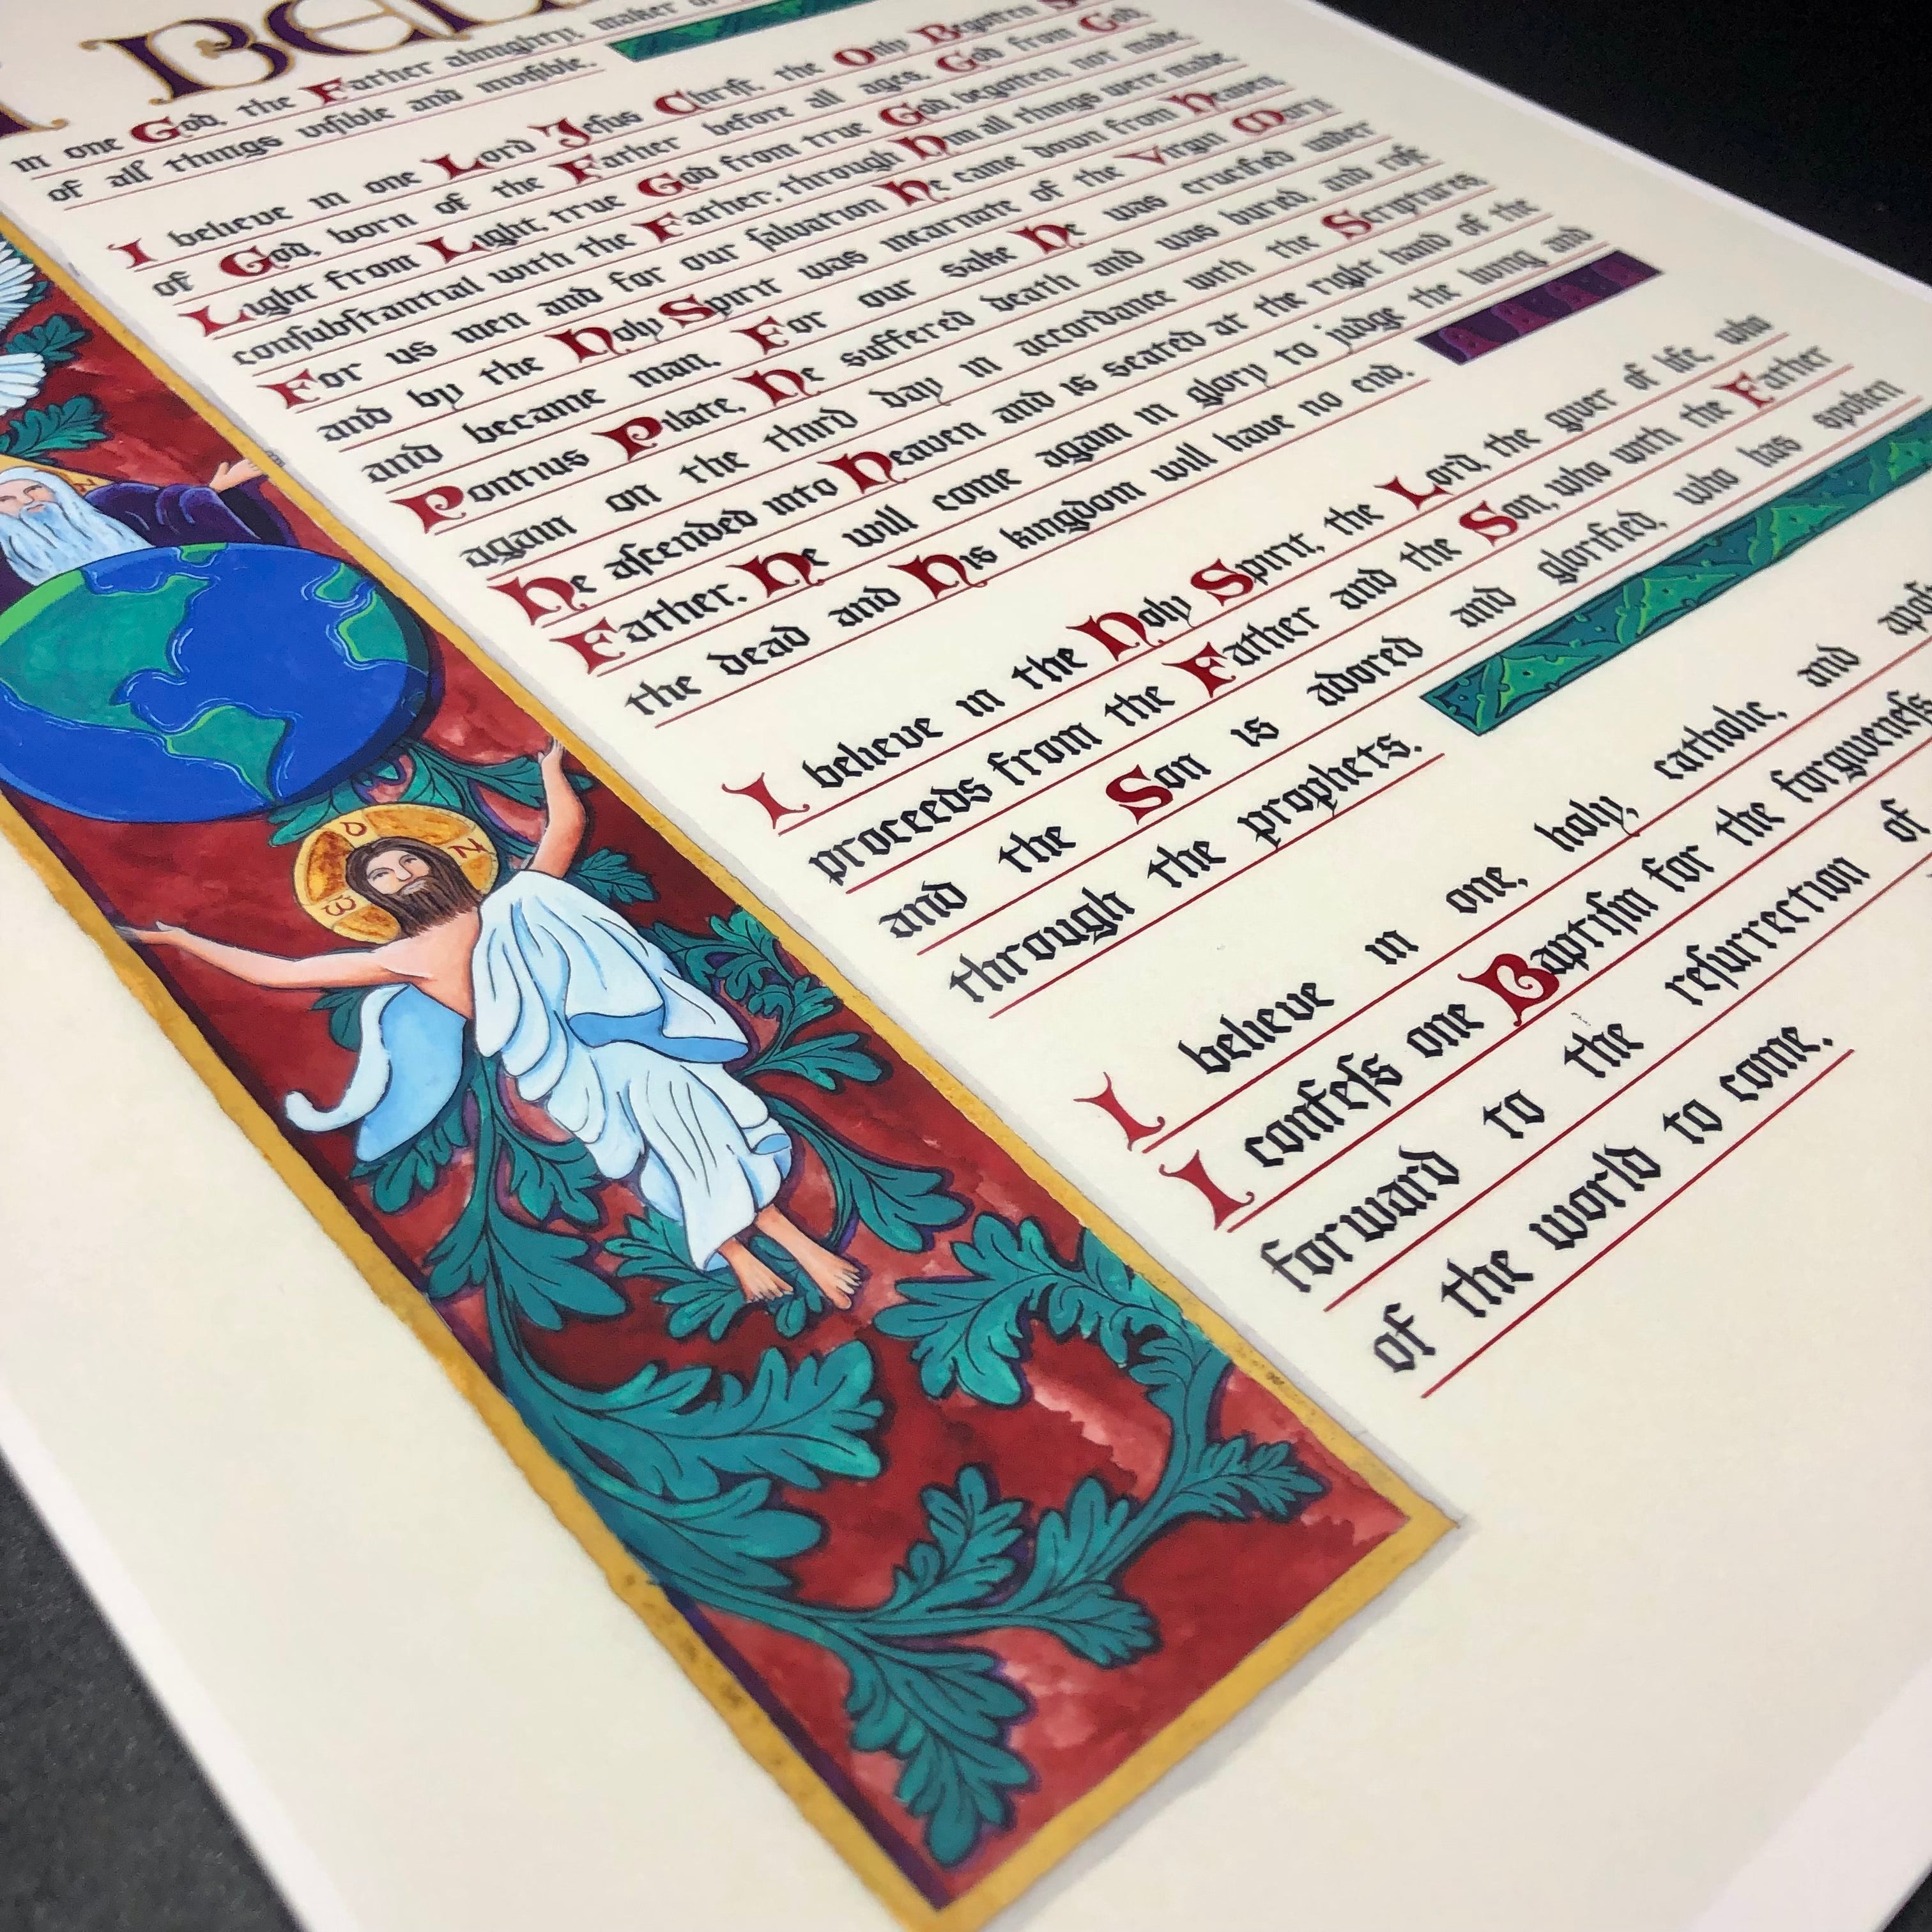 BEL
in one God, the Father almighty, maker of
of all things viſible and inviſible.
I believe in one Lord Jeſus Chriſt, the Only Begotten
of God, born of the Father before all ages. God from God,
Light from Light, true God from true God, begotten, not made,
conſubſtantial with the Father; through Him all things were made.
For us men and for our ſalvation He came down from Heaven,
and by the Holy Spirit was incarnate of the Virgin Mary
and became man. For our sake He was crucified under
Pontius Pilate, He suffered death and was buried, and roſe
again on the third day in accordance with the Scriptures.
He aſcended into Heaven and is seated at the right hand of the
Father. He will come again in glory to judge the living and
the dead and His kingdom will have no end.
I believe in the Holy Spirit, the Lord, the giver of life, who
proceeds from the Father and the Son, who with the Father
and the Son is adored and glorified, who has spoken
through the prophets.
I believe in one, holy, catholic, and
I confeſs one Baptiſm for the forgiveneſs
forward to the reſurrection of
of the world to come.
ω Ο Ν